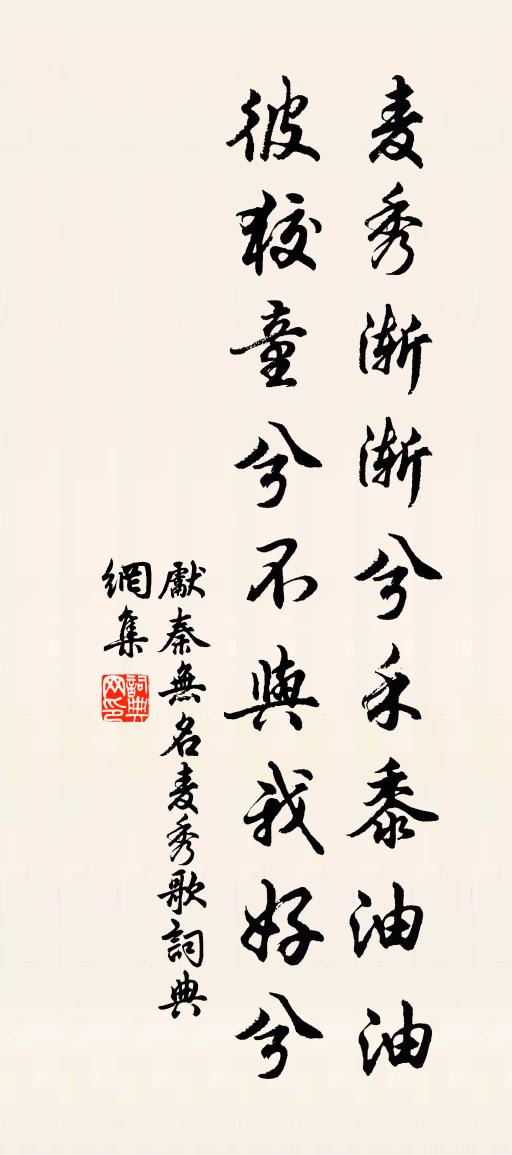 麦秀渐渐兮禾黍油油
彼狡童兮不與我好兮
獻秦無名麦秀歌詞典
網集
詞典网印